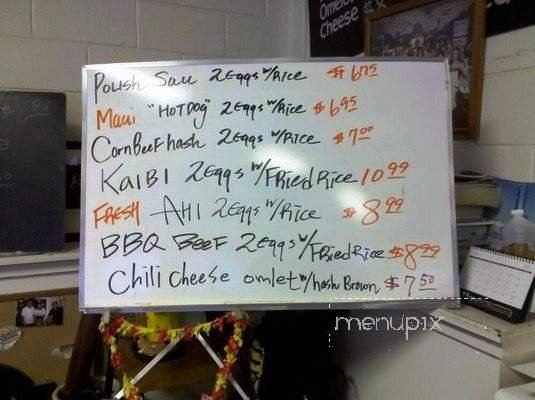 Omelet
Cheese
Polish Sau 2Eggs w/Rice $6.75
Maui "HOTDOG" 2Eggs w/Rice $6.95
CornBeefhash 2Eggs w/Rice $7.00
KAlBI 2Eggs w/FRiedRice 10.99
FRESH AHI 2Eggs w/Rice $8.99
BBQ BEEF 2Eggs w/FRiedRice $8.99
Chili cheese omlet w/hash Brown $7.50
menupix